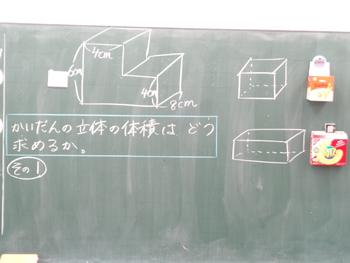 4cm
6cm
4cm
8cm
かいだんの立体の体積は どう
求めるか。
その1